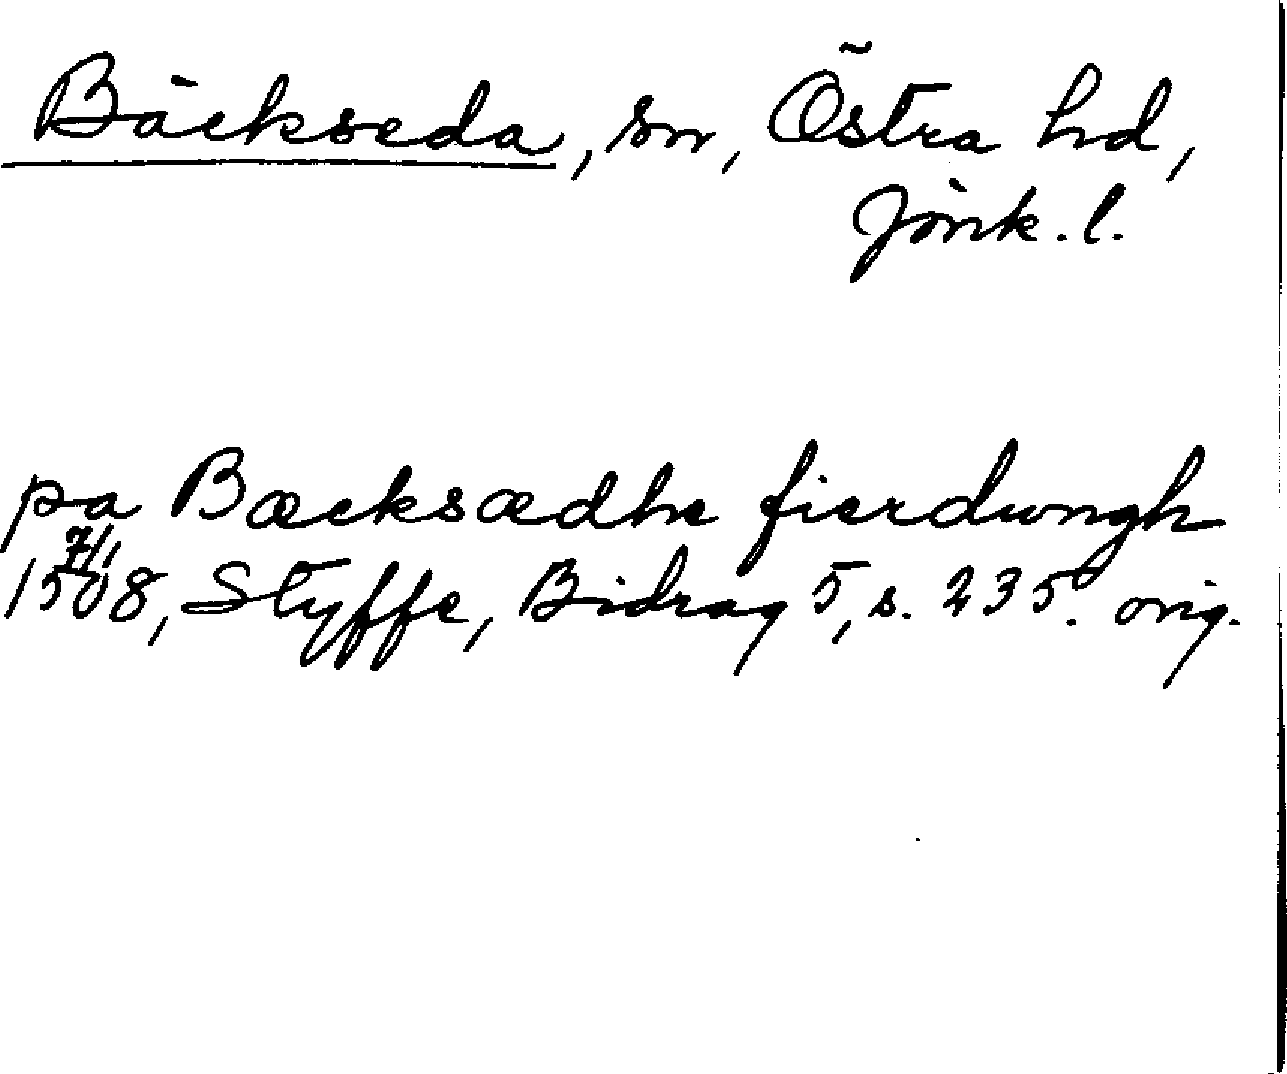 Bäckseda, sn, Östra hd,
Jönk. l.
pa Bæcksædhe fierdwngh
7/1
1508, Styffe, Bidrag 5, s. 235. orig.